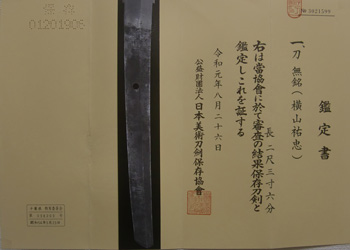 鑑定書
一、刀 無銘(横山祐忠)
長 二尺三寸六分
右は當協會に於て審査の結果保存刀剣と
鑑定しこれを証する
令和元年八月二十六日
公益財団法人 日本美術刀剣保存協會
保存
01201905